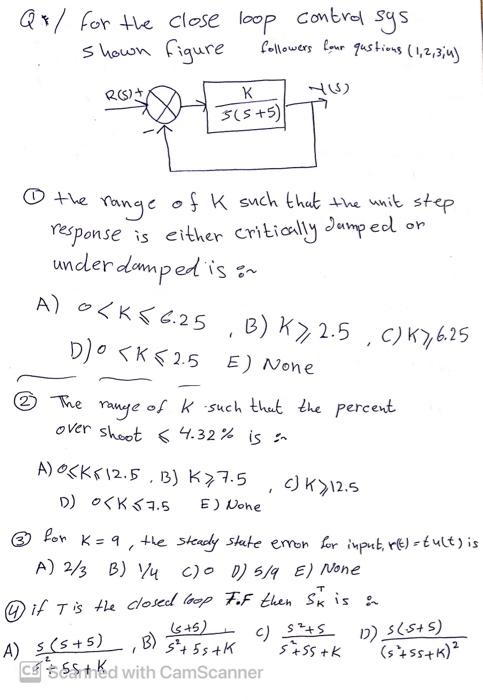 Q8/ for the close loop control sys
shown figure followers four qustions (1,2,3,4)
R(s) + K Y(s)
- s(s+5)
① the range of K such that the unit step
response is either critically damped or
under damped is :~
A) 0<K≤6.25 , B) K≥2.5 , C) K≥6.25
D) 0<K≤2.5 E) None
② The range of K such that the percent
over shoot ≤ 4.32% is :~
A) 0≤K≤12.5 , B) K≥7.5 , C) K≥12.5
D) 0<K≤7.5 E) None
③ for K=9 , the steady state error for input, r(t)=tu(t) is
A) 2/3 B) 1/4 C) 0 D) 5/9 E) None
④ if T is the closed loop T.F then S_K^T is :~
A) s(s+5) / s²+5s+K , B) (s+5) / s²+5s+K C) s²+5 / s²+5s+K D) s(s+5) / (s²+5s+K)²
CS Scanned with CamScanner